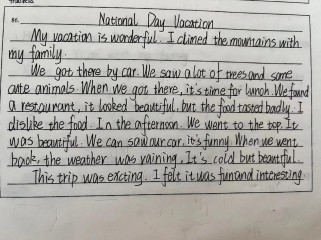 86.
National Day Vacation
My vacation is wonderful. I climed the mountains with
my family.
We got there by car. We saw a lot of trees and some
cute animals. When we got there, it's time for lunch. We found
a restaurant, it looked beautiful, but the food tasted badly. I
dislike the food. In the afternoon. We went to the top. It
was beautiful. We can saw our car, it's funny. When we went
back, the weather was raining, It's cold but beautful.
This trip was excting. I felt it was fun and interesting.